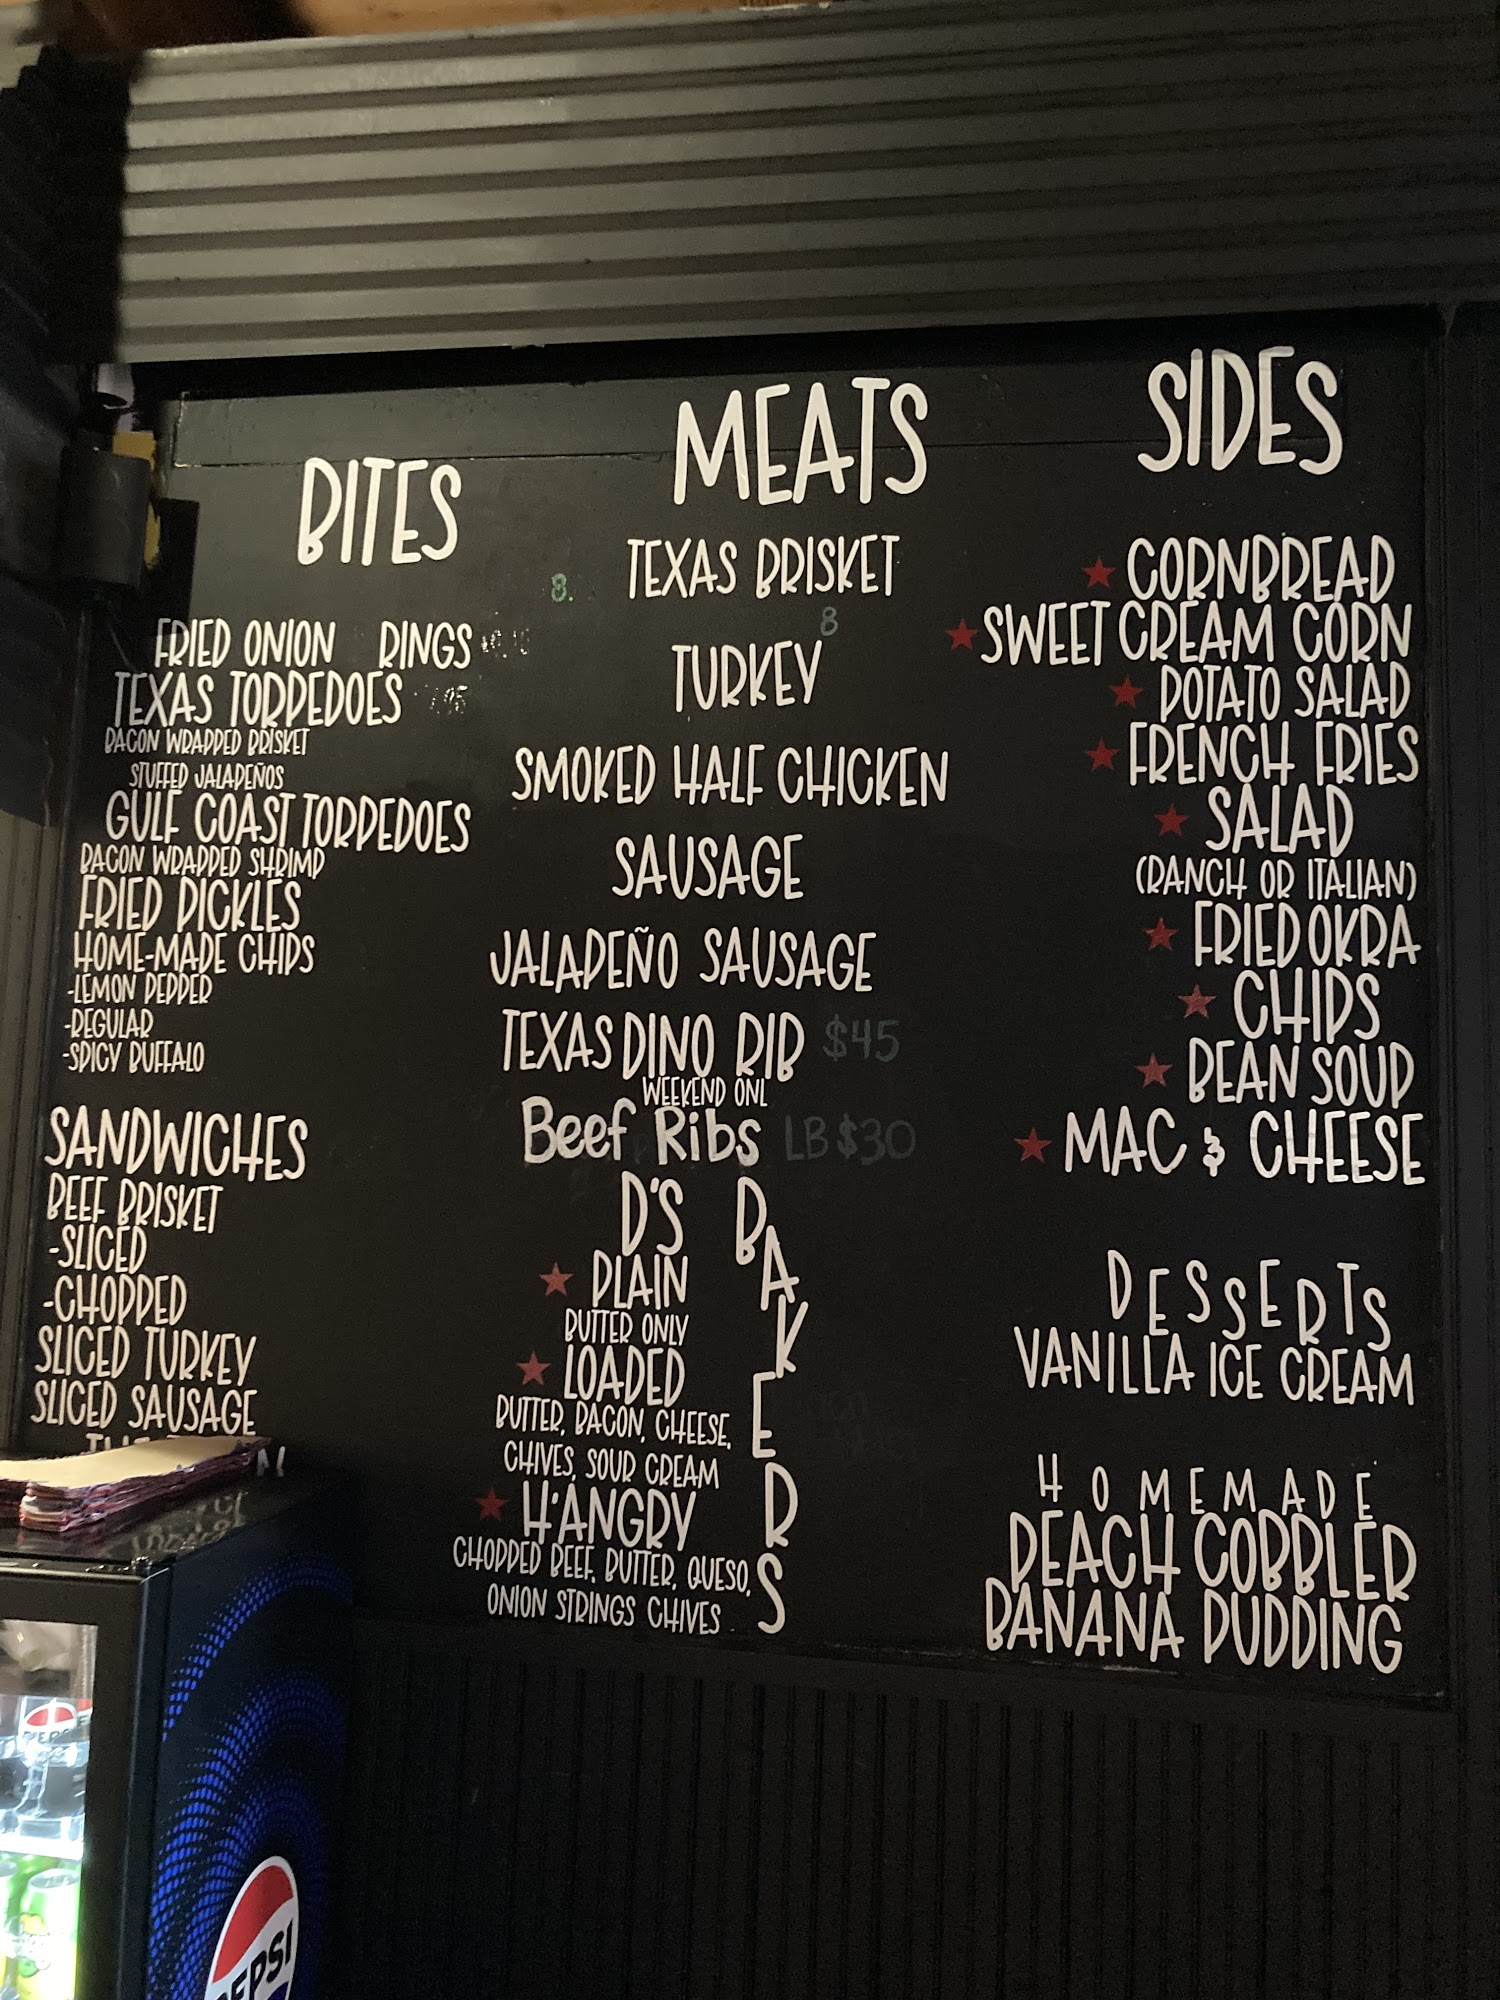 BITES
FRIED ONION RINGS
TEXAS TORPEDOES
BACON WRAPPED BRISKET
STUFFED JALAPEÑOS
GULF COAST TORPEDOES
BACON WRAPPED SHRIMP
FRIED PICKLES
HOME-MADE CHIPS
-LEMON PEPPER
-REGULAR
-SPICY BUFFALO
SANDWICHES
BEEF BRISKET
-SLICED
-CHOPPED
SLICED TURKEY
SLICED SAUSAGE
MEATS
8. TEXAS BRISKET
8
TURKEY
SMOKED HALF CHICKEN
SAUSAGE
JALAPEÑO SAUSAGE
TEXAS DINO RIB $45
WEEKEND ONL
Beef Ribs LB $30
D'S BAKERS
PLAIN
BUTTER ONLY
LOADED
BUTTER, BACON, CHEESE,
CHIVES, SOUR CREAM
H'ANGRY
CHOPPED BEEF, BUTTER, QUESO,
ONION STRINGS CHIVES
SIDES
CORNBREAD
SWEET CREAM CORN
POTATO SALAD
FRENCH FRIES
SALAD
(RANCH OR ITALIAN)
FRIED OKRA
CHIPS
BEAN SOUP
MAC & CHEESE
DESSERTS
VANILLA ICE CREAM
HOMEMADE
PEACH COBBLER
BANANA PUDDING
PEPSI
PEPSI